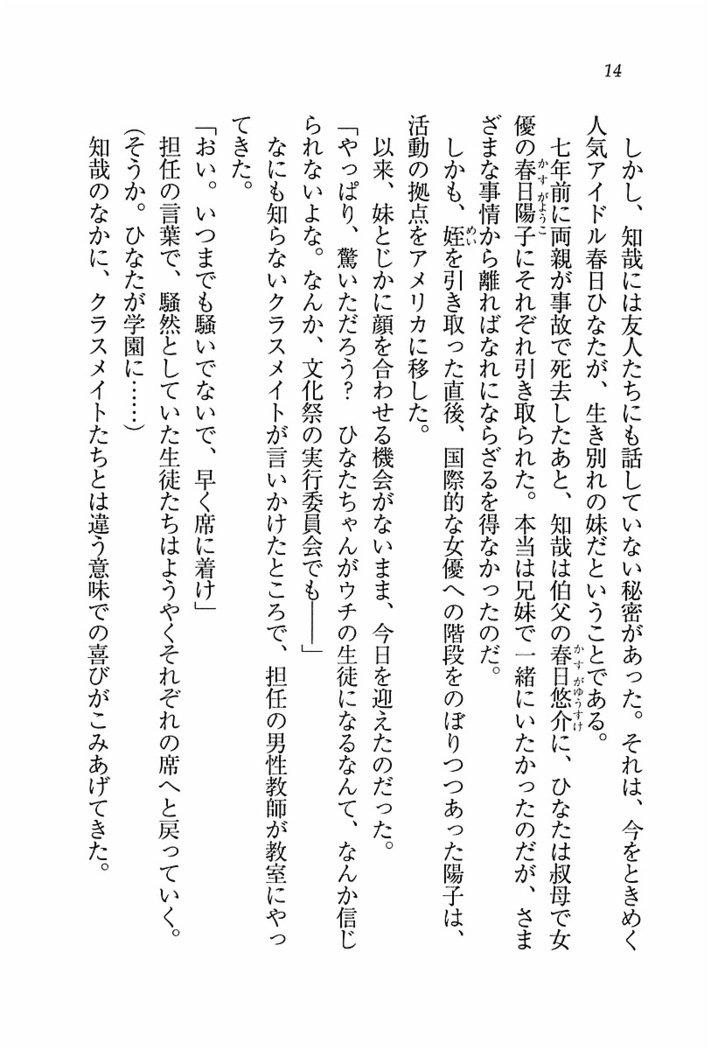 14
しかし、知哉には友人たちにも話していない秘密があった。それは、今をときめく
人気アイドル春日ひなたが、生き別れの妹だということである。
七年前に両親が事故で死去したあと、知哉は伯父の春日悠介に、ひなたは叔母で女
優の春日陽子にそれぞれ引き取られた。本当は兄妹で一緒にいたかったのだが、さま
ざまな事情から離ればなれにならざるを得なかったのだ。
しかも、姪を引き取った直後、国際的な女優への階段をのぼりつつあった陽子は、
活動の拠点をアメリカに移した。
以来、妹とじかに顔を合わせる機会がないまま、今日を迎えたのだった。
「やっぱり、驚いただろう？　ひなたちゃんがウチの生徒になるなんて、なんか信じ
られないよな。なんか、文化祭の実行委員会でも――」
なにも知らないクラスメイトが言いかけたところで、担任の男性教師が教室にやっ
てきた。
「おい。いつまでも騒いでないで、早く席に着け」
担任の言葉で、騒然としていた生徒たちはようやくそれぞれの席へと戻っていく。
（そうか。ひなたが学園に……）
知哉のなかに、クラスメイトたちとは違う意味での喜びがこみあげてきた。
かすがゆうすけ
かすがようこ
めい